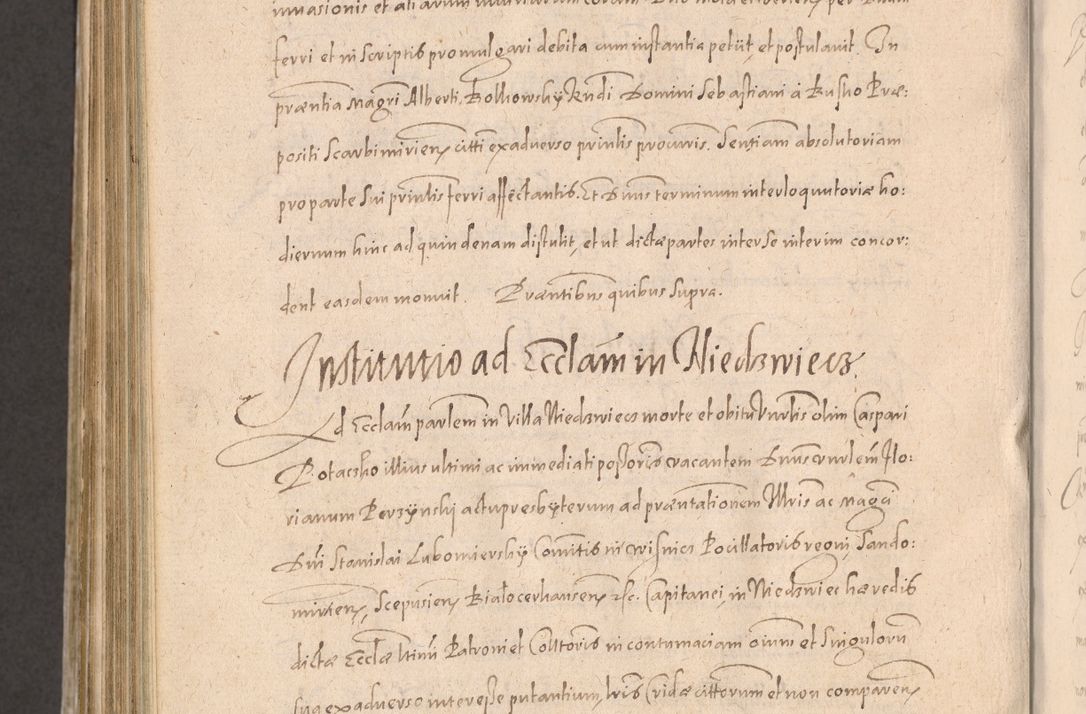 invasionis et aliarum
ferri et in scriptis promulgari debita cum instantia petiit, et postulavit. In
præntia Magri Alberti Bolhowsky Rndi Domini Sebastiani à Rusko Præ:
positi Scarbimirien citti ex adverso prinlis procuris. Sentiam absolutoriam
pro parte sui prinlis ferri affectantis. Et Dnus terminum interloquutoriæ ho:
diernum hinc ad quindenam distulit, et ut dictæ partes inter se interim concor:
dent easdem monuit. Præntibus quibus supra.
Institutio ad Ecclam in Niedzwiecz.
Ad Ecclam parlem in Villa Niedzwiecz morte et obitu Vnrlis olim Caspari
Potaczko illius ultimi ac immediati possoris vacantem Dnus vnrlem Flo:
rianum Perzynskij actu presbyterum ad præntationem Illris ac Magci
Dni Stanislai Lubomiersky Comitis in Wisnicz Pocillatoris regni, Sando:
mirien, Scepusien Bialocerkausen &c. Capitanei, in Niedzwiec hæredis
dictæ Ecclæ ltimi Patroni et Colltoris in contumaciam oium et singulorum
sua ex adverso interesse putantium, lris Cridæ cittorum et non comparen